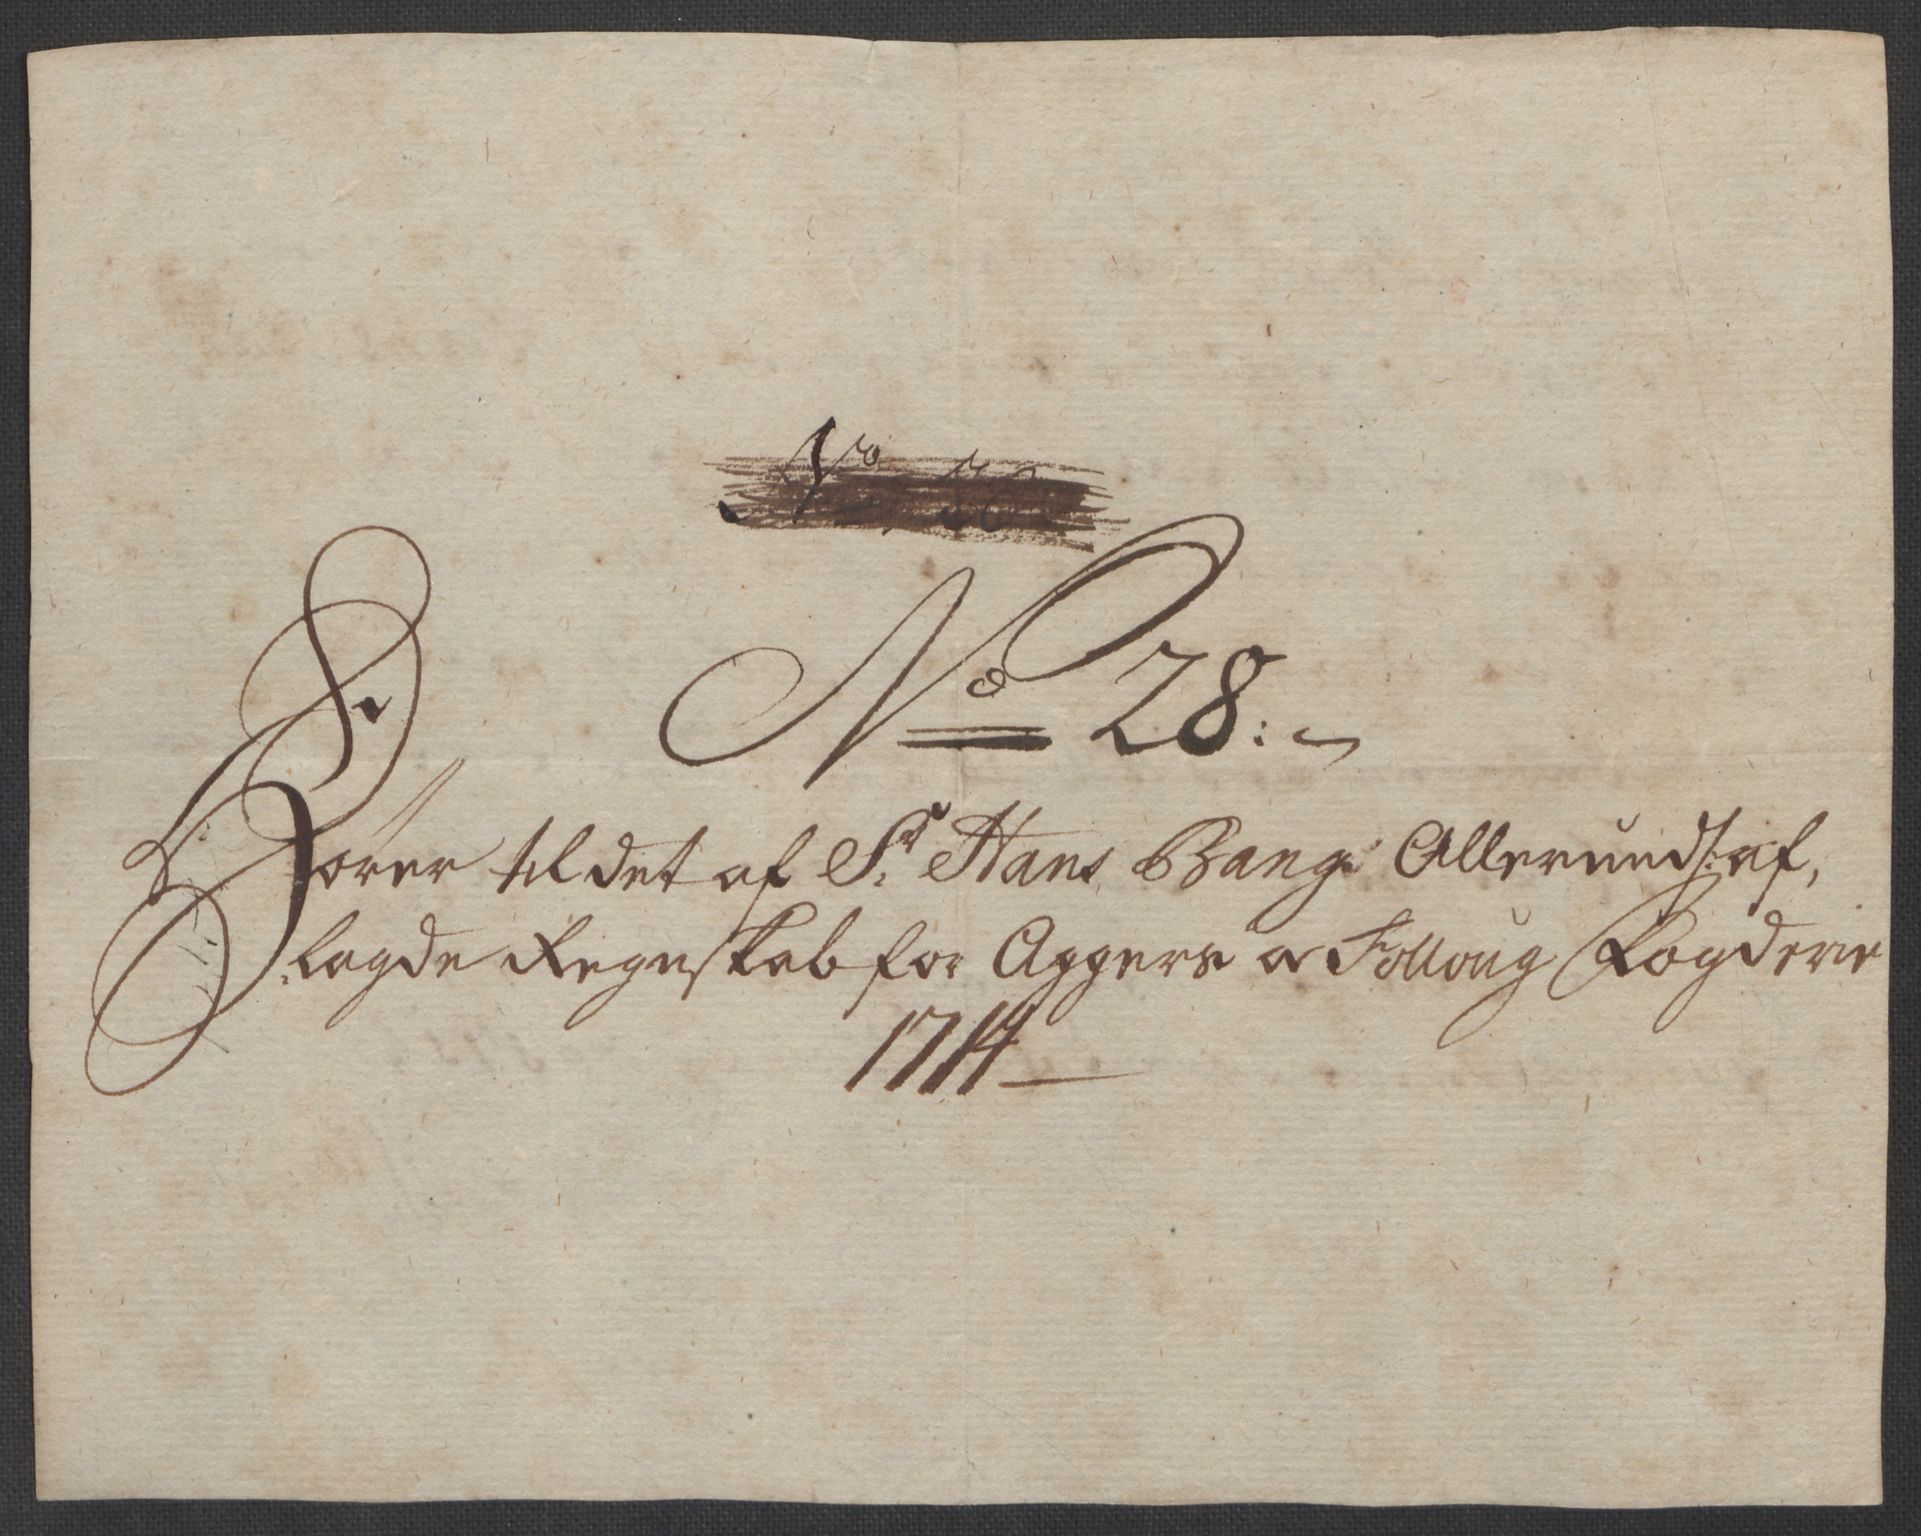 No 28:
Hörer til det af Sr Hans Bang Allerund: af,
lagde Regnskab for Aggers o Folloug Fogderie
1714